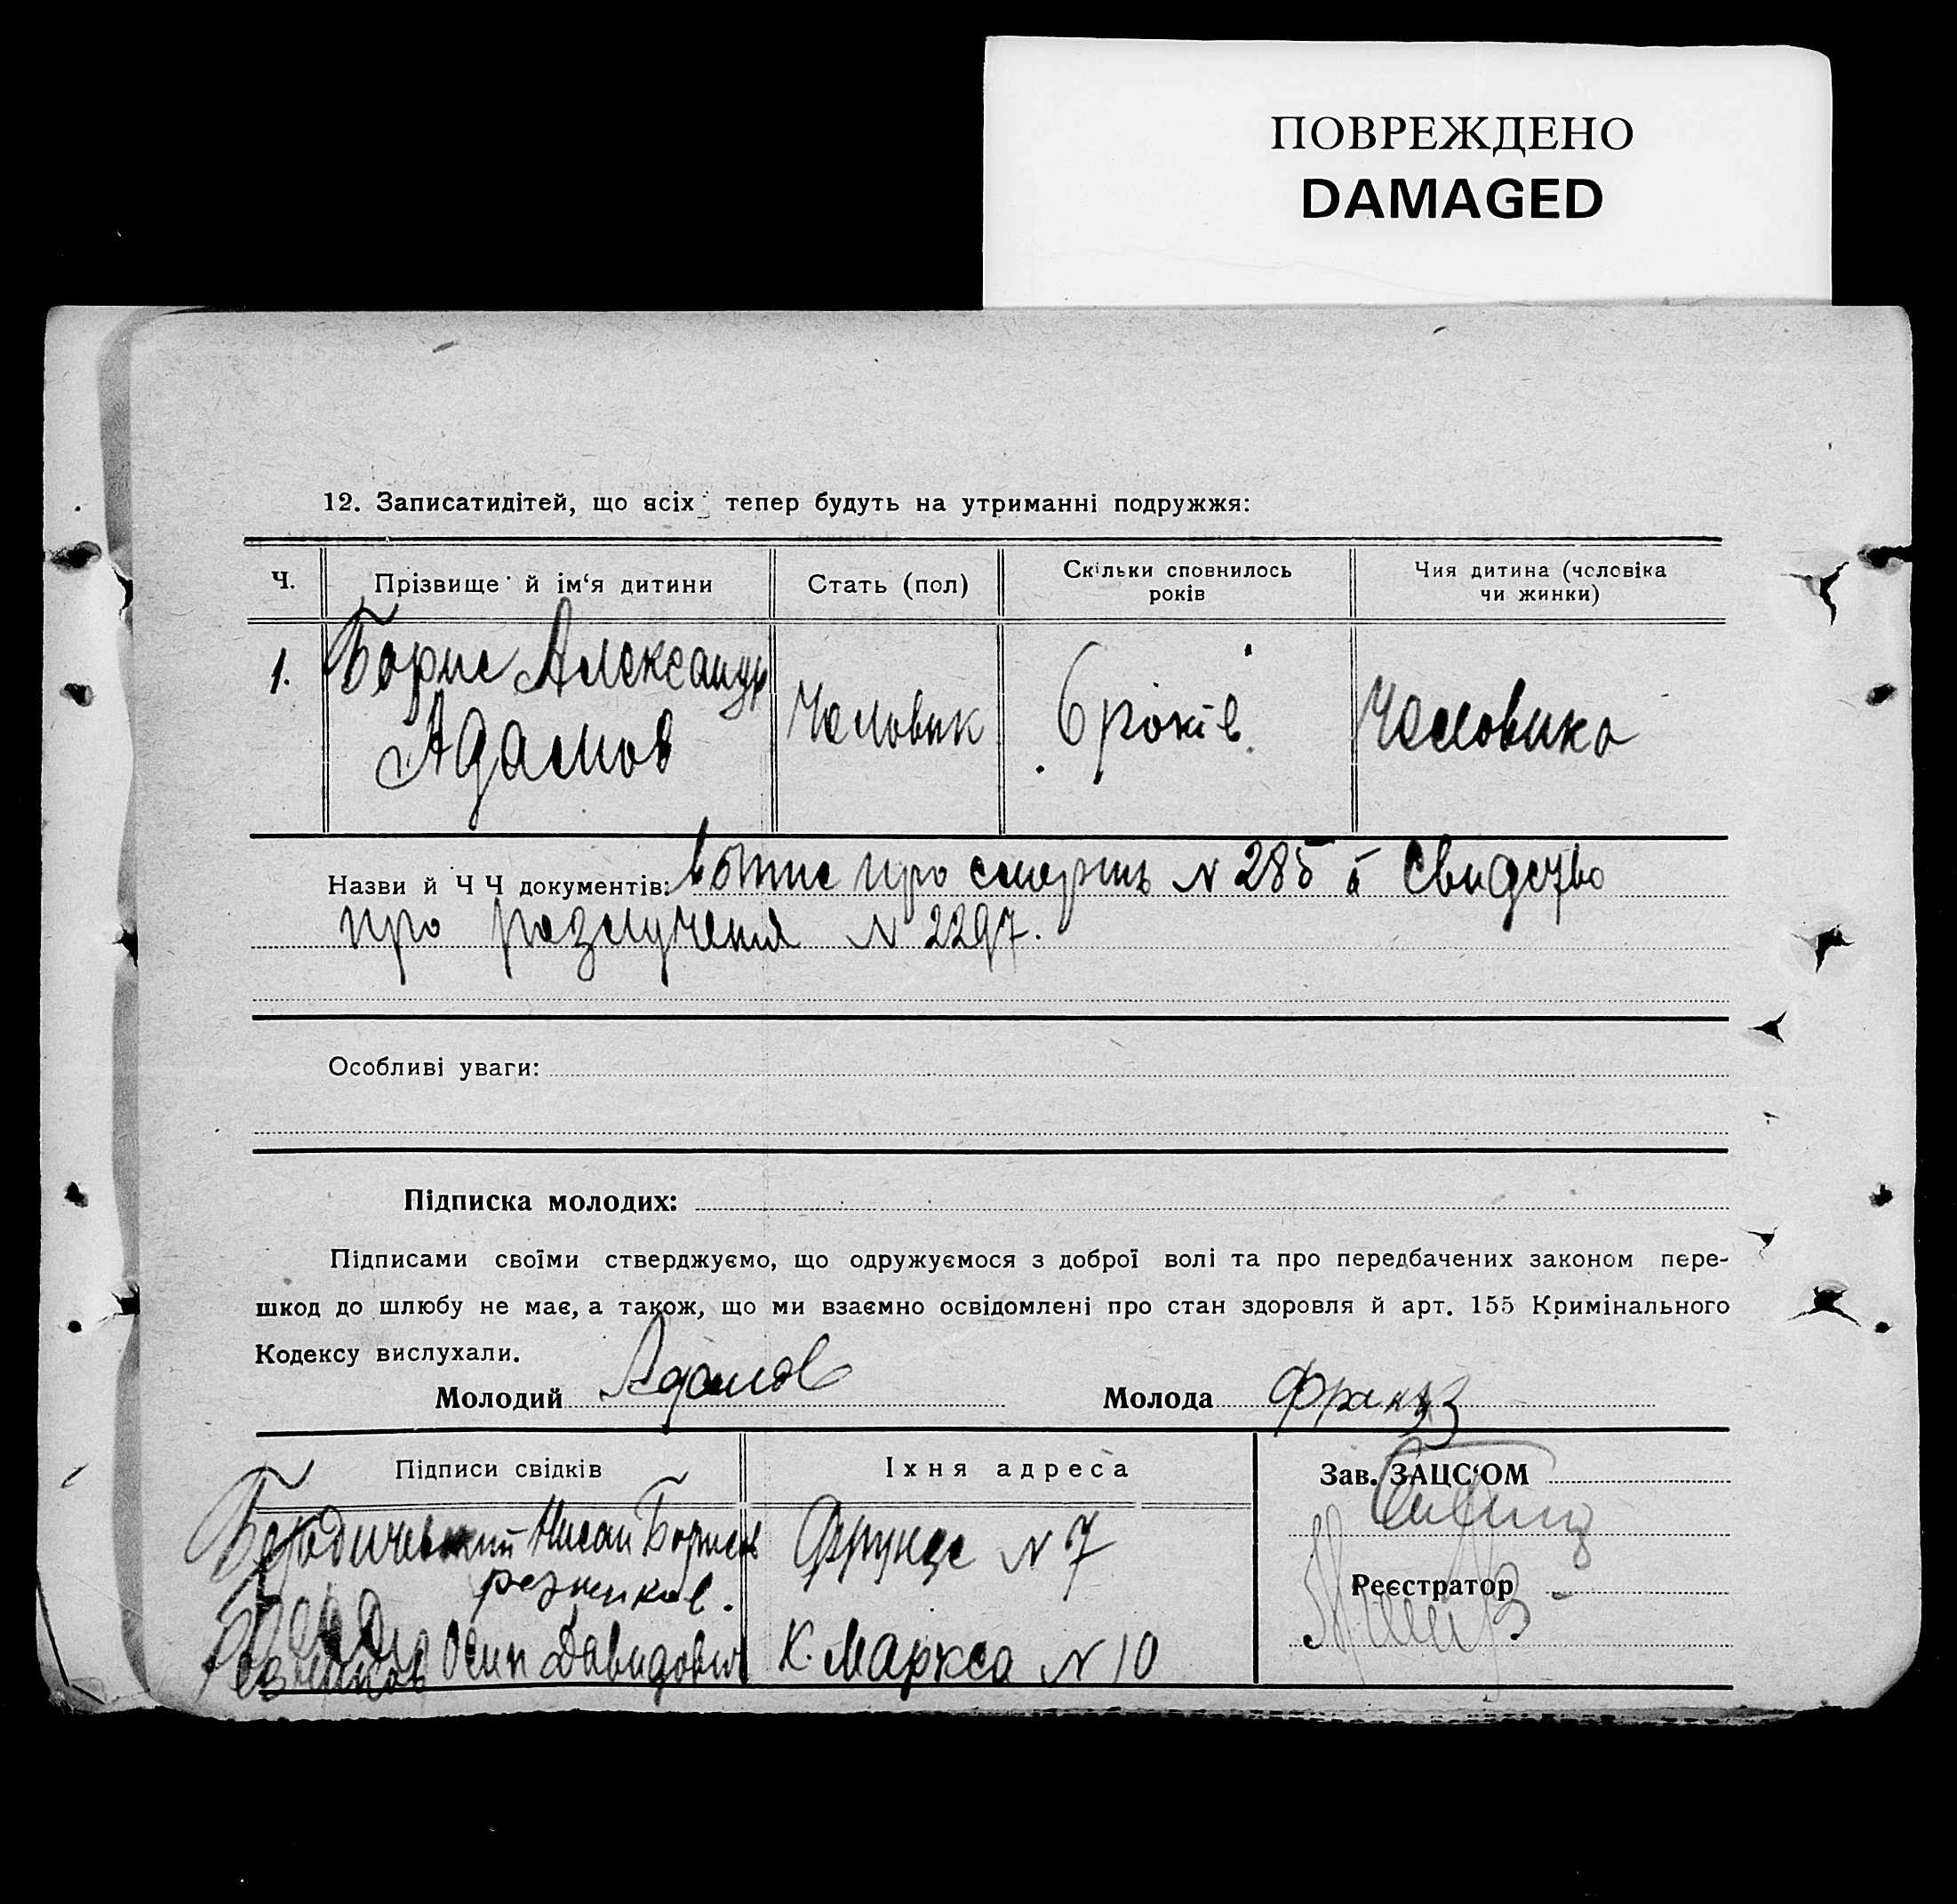 ПОВРЕЖДЕНО
DAMAGED
12. Записатидітей, що всіх тепер будуть на утриманні подружжя:
Ч. Прізвище й ім‘я дитини Стать (пол) Скільки сповнилось років Чия дитина (чоловіка чи жинки)
1. Борис Александр Адамов Чоловик 6 років Чоловика
Назви й Ч Ч документів: про смерть N 285 й Свидство
про N 2297.
Особливі уваги:
Підписка молодих:
Підписами своїми стверджуємо, що одружуємося з доброї волі та про передбачених законом пере-
шкод до шлюбу не має, а також, що ми взаємно освідомлені про стан здоровля й арт. 155 Кримінального
Кодексу вислухали.
Молодий Адамов Молода Франц
Підписи свідків Їхня адреса Зав. ЗАЦС‘ОМ
Нисон Борисов Фрунце N 7
резников.
Реєстратор
Осип Давидович К. Маркса N 10